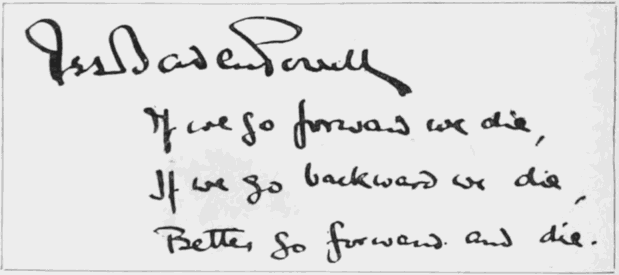 R.S.S. Baden Powell
If we go forward we die,
If we go backward we die,
Better go forward and die.